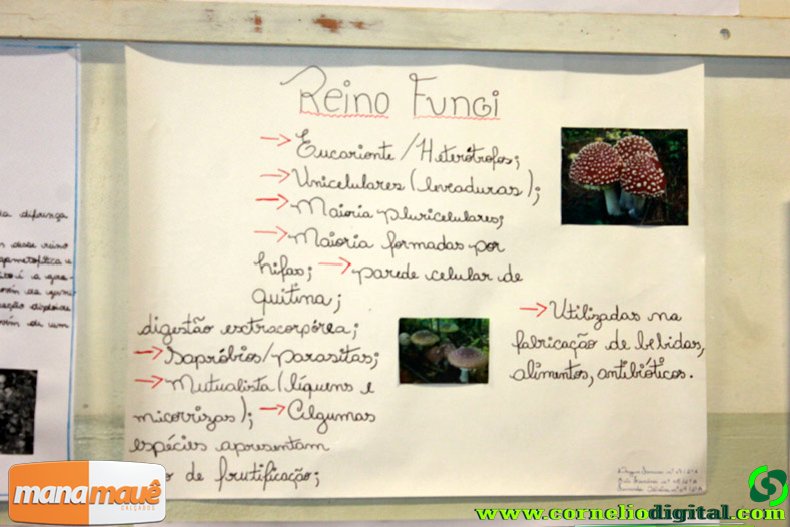 Reino Fungi
→ Eucarionte/Heterótrofos;
→ Unicelulares (leveduras);
→ Maioria pluricelulares;
→ Maioria formadas por
hifas; → parede celular de
quitina;
digestão extracorpórea;
→ Sapróbios/parasitas;
→ Mutualista (líquens e
micorrizas); → Algumas
espécies apresentam
de frutificação;
→ Utilizadas na
fabricação de bebidas,
alimentos, antibióticos.
diferença
reino
manamauê
CALÇADOS
www.corneliodigital.com